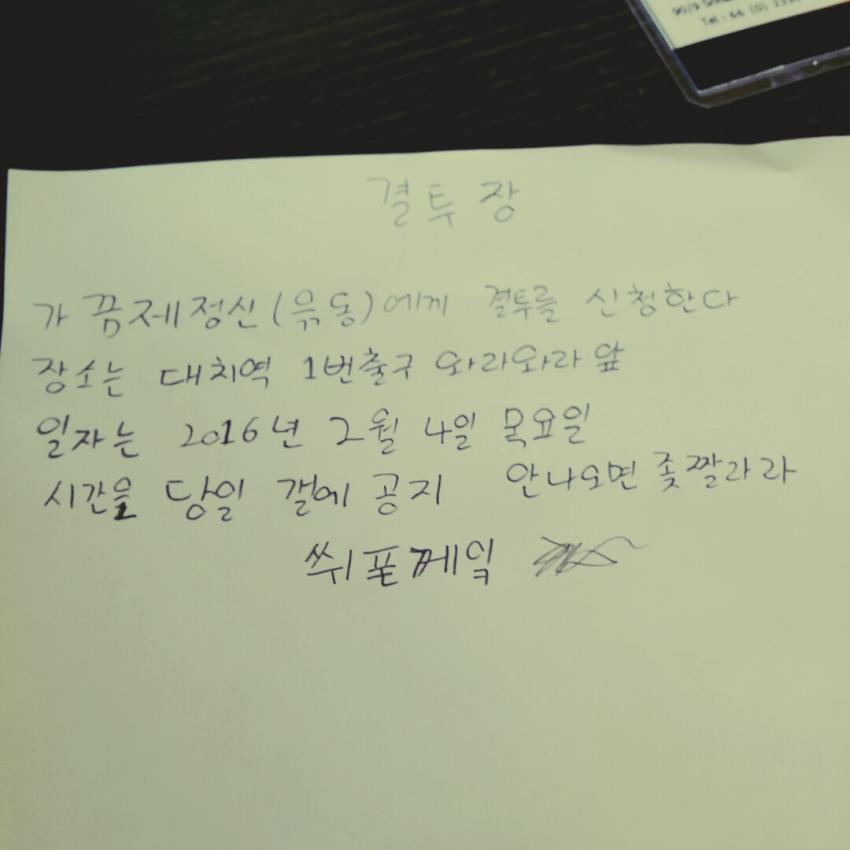 Tel : 66 (0)
결투장
가끔제정신(유동)에게 결투를 신청한다
장소는 대치역 1번출구 와라와라 앞
일자는 2016년 2월 4일 목요일
시간은 당일 갤에 공지 안나오면 좆짤라라
쒸폴께잌